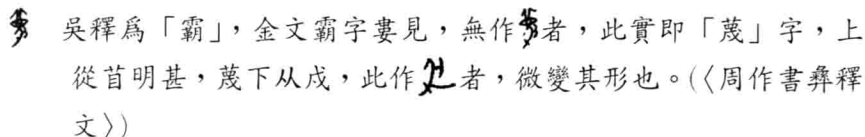 吳釋爲「霸」，金文霸字婁見，無作者，此實即「蔑」字，上
從苜明甚，蔑下从戍，此作者，微變其形也。(〈周作書彝釋
文〉)